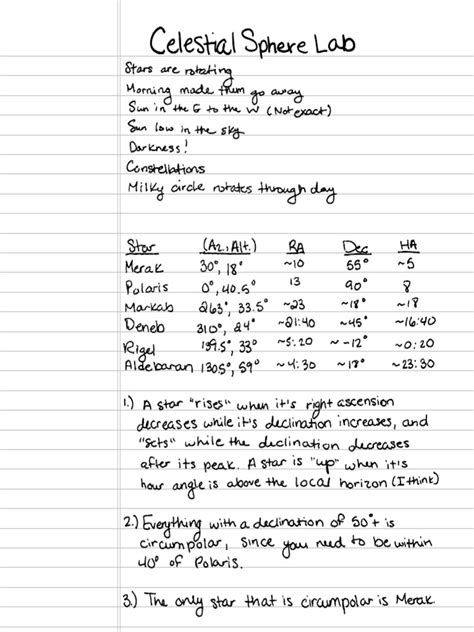 Celestial Sphere Lab
Stars are rotating
Morning made them go away
Sun in the E to the W (Not exact)
Sun low in the sky
Darkness!
Constellations
Milky circle rotates through day
Star (Az, Alt.) RA Dec HA
Merak 30°, 18° ~10 55° ~5
Polaris 0°, 40.5° 13 90° 8
Markab 263°, 33.5° ~23 ~18° ~18
Deneb 310°, 24° ~21:40 ~45° ~16:40
Rigel 159.5°, 33° ~5:20 ~-12° ~0:20
Aldebaran 130.5°, 59° ~4:30 ~18° ~23:30
1.) A star "rises" when it's right ascension
decreases while it's declination increases, and
"sets" while the declination decreases
after its peak. A star is "up" when it's
hour angle is above the local horizon (I think)
2.) Everything with a declination of 50°+ is
circumpolar, since you need to be within
40° of Polaris.
3.) The only star that is circumpolar is Merak.